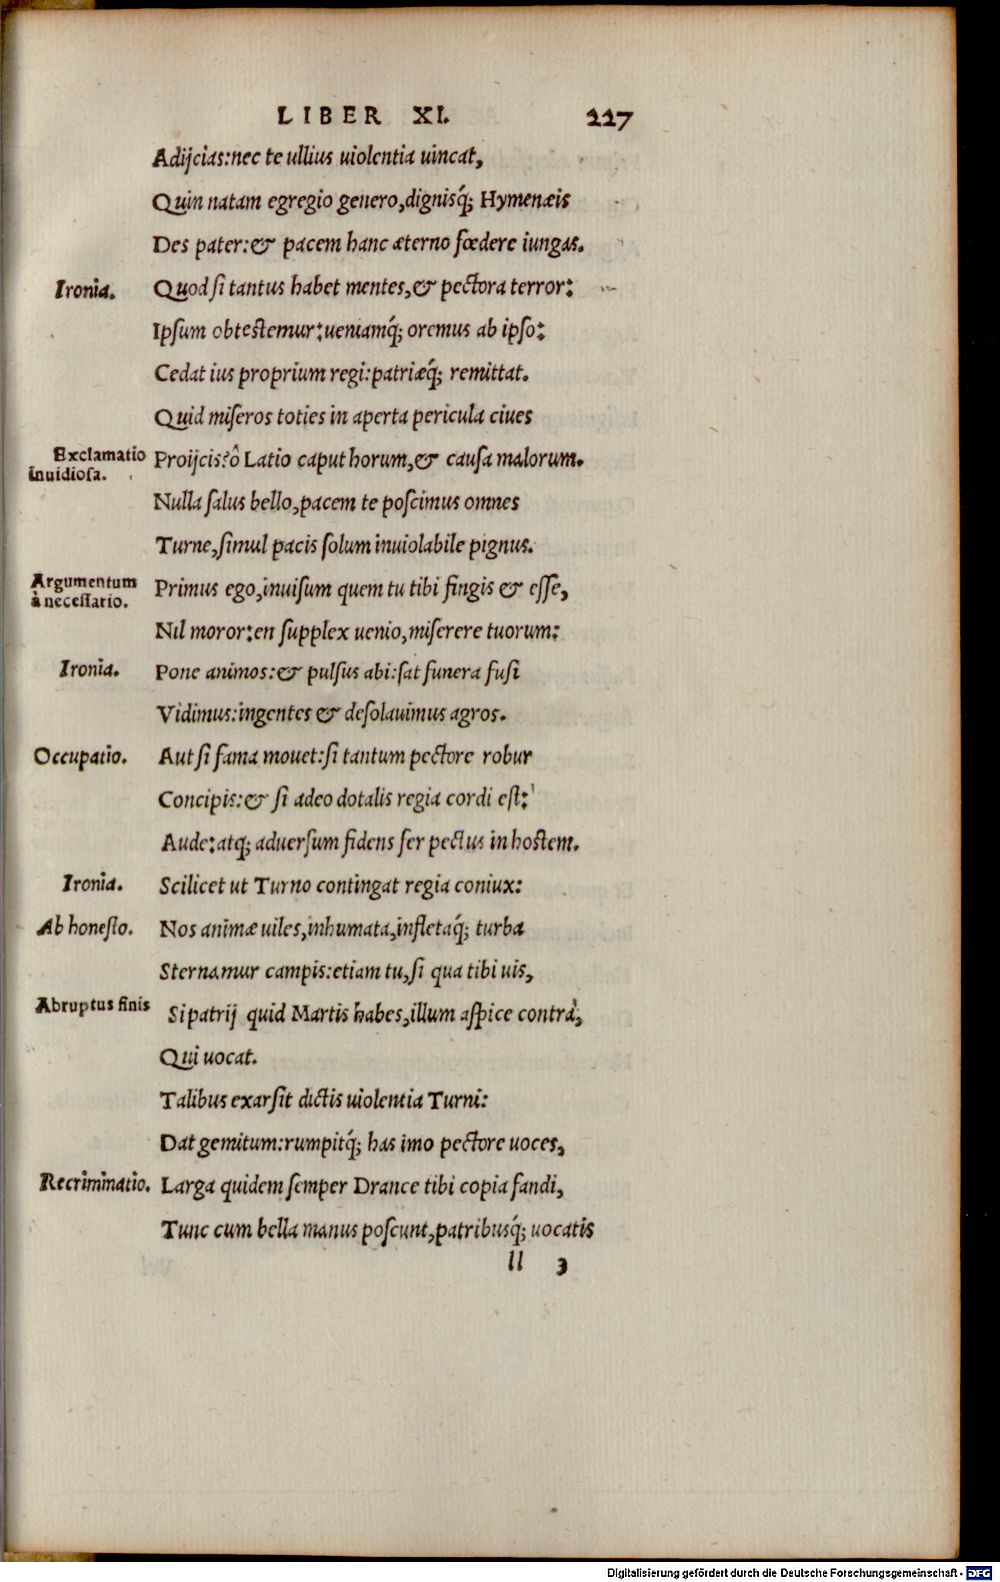 LIBER XI. 227
Adijcias:nec te ullius uiolentia uincat,
Quin natam egregio genero,dignisq́; Hymenæis
Des pater:& pacem hanc æterno fœdere iungas.
Ironia. Quod si tantus habet mentes,& pectora terror:
Ipsum obtestemur:ueniamq́; oremus ab ipso:
Cedat ius proprium regi:patriæq́; remittat.
Quid miseros toties in aperta pericula ciues
Exclamatio Proijcis?ô Latio caput horum,& causa malorum.
inuidiosa.
Nulla salus bello,pacem te poscimus omnes
Turne,simul pacis solum inuiolabile pignus.
Argumentum Primus ego,inuisum quem tu tibi fingis & esse,
à necessario.
Nil moror:en supplex uenio,miserere tuorum:
Ironia. Pone animos:& pulsus abi:sat funera fusi
Vidimus:ingentes & desolauimus agros.
Occupatio. Aut si fama mouet:si tantum pectore robur
Concipis:& si adeo dotalis regia cordi est:
Aude:atq; aduersum fidens fer pectus in hostem.
Ironia. Scilicet ut Turno contingat regia coniux:
Ab honesto. Nos animæ uiles,inhumata,infletaq́; turba
Sternamur campis:etiam tu,si qua tibi uis,
Abruptus finis Si patrij quid Martis habes,illum aspice contrà,
Qui uocat.
Talibus exarsit dictis uiolentia Turni:
Dat gemitum:rumpitq́; has imo pectore uoces,
Recriminatio. Larga quidem semper Drance tibi copia fandi,
Tunc cum bella manus poscunt,patribusq́; uocatis
ll 3
Digitalisierung gefördert durch die Deutsche Forschungsgemeinschaft - DFG